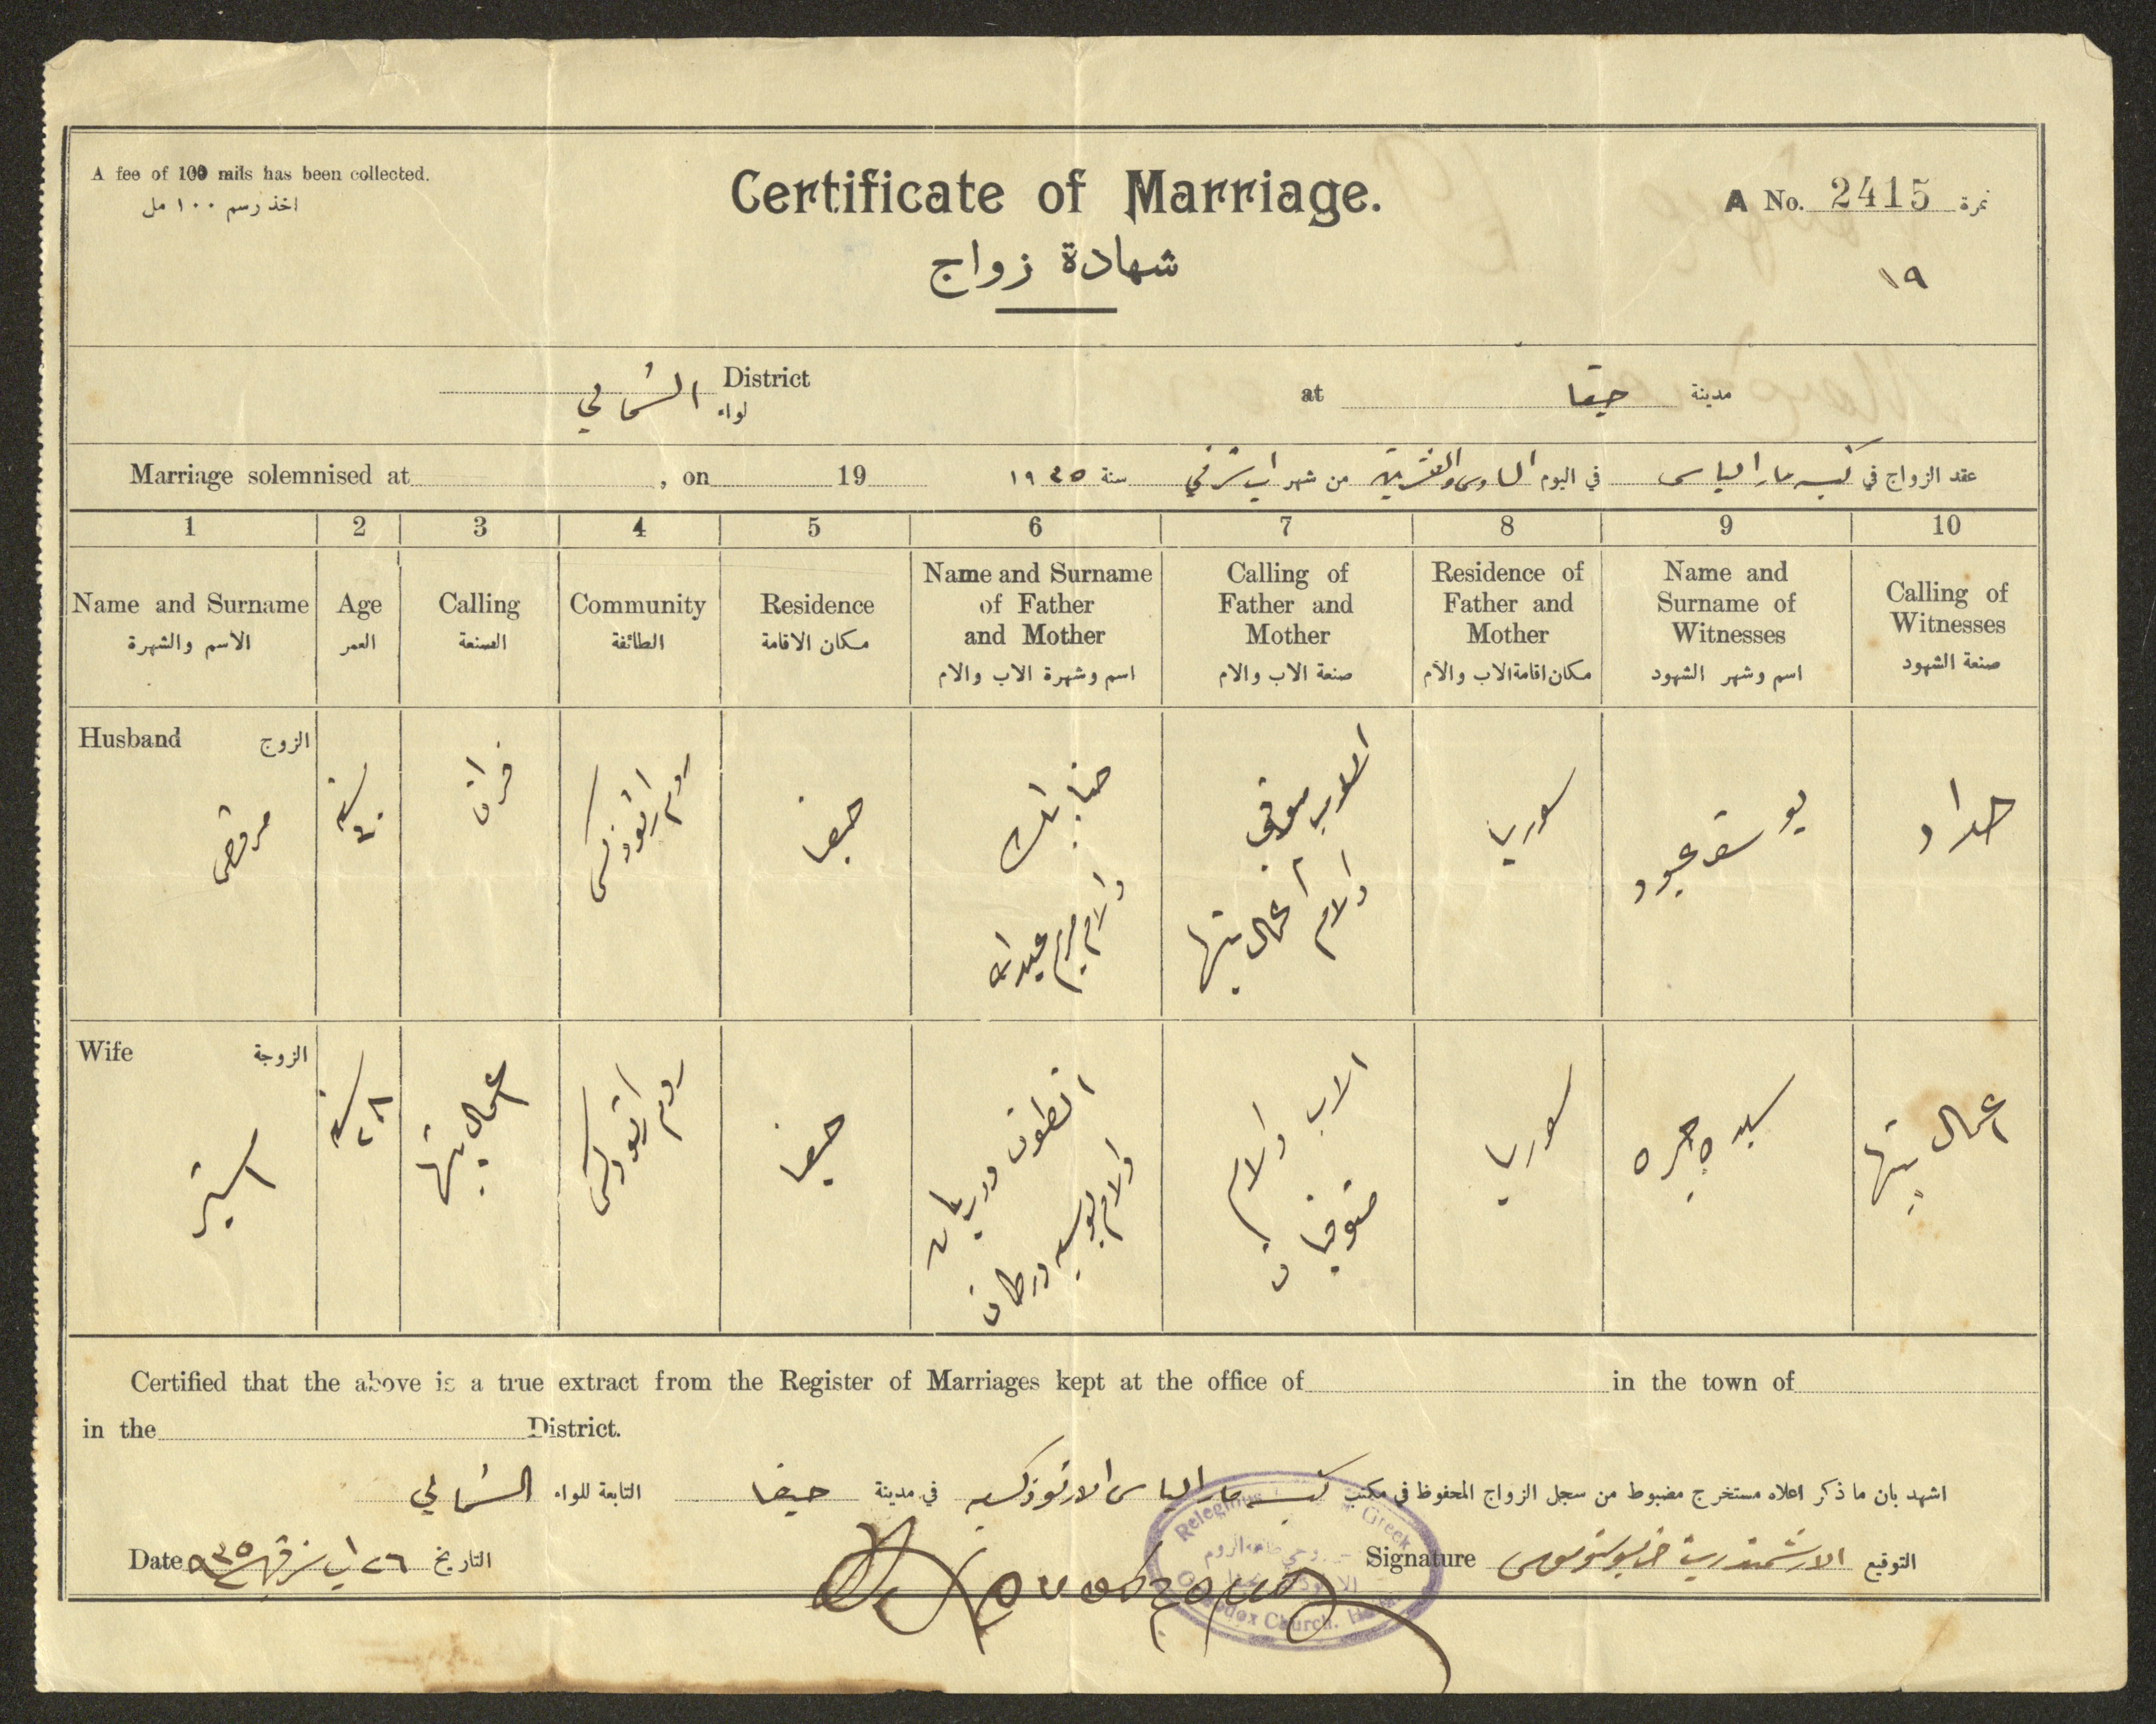 A fee of 100 mils has been collected.
اخذ رسم ١٠٠ مل
Certificate of Marriage.
شهادة زواج
A No. 2415 نمرة
١٩
District الشمالي لواء
at حيفا مدينة
Marriage solemnised at , on 19
عقد الزواج في كنيسة مار الياس في اليوم السادس والعشرين من شهر اب شرقي سنة ١٩٣٥
1 2 3 4 5 6 7 8 9 10
Name and Surname الاسم والشهرة
Age العمر
Calling الصنعة
Community الطائفة
Residence مكان الاقامة
Name and Surname of Father and Mother اسم وشهرة الاب والام
Calling of Father and Mother صنعة الاب والام
Residence of Father and Mother مكان اقامة الاب والأم
Name and Surname of Witnesses اسم وشهر الشهود
Calling of Witnesses صنعة الشهود
Husband الزوج
مرقص
سنة
فران
روم ارثوذكس
حيفا
حنا
والام مريم عبدالله
الاب متوفي
والام اعمال بيتها
سوريا
يوسف عبود
حداد
Wife الزوجة
استير
٢٨ سنة
اعمال بيتها
روم ارثوذكس
حيفا
انطون
والام
الاب والام
متوفيان
سوريا
اعمال بيتها
Certified that the above is a true extract from the Register of Marriages kept at the office of in the town of
in the District.
اشهد بان ما ذكر اعلاه مستخرج مضبوط من سجل الزواج المحفوظ في مكتب كنيسة مار الياس الارثوذكسية في مدينة حيفا التابعة للواء الشمالي
Date ٢٦ اب شرقي ٩٣٥ التاريخ
Signature الارشمندريت التوقيع
Greek
Orthodox Church.